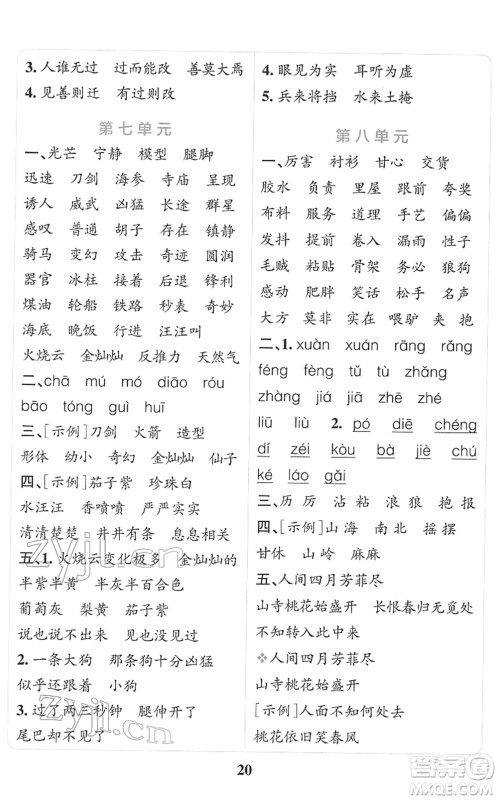 3. 人谁无过 过而能改 善莫大焉
4. 见善则迁 有过则改
第七单元
一、光芒 宁静 模型 腿脚
迅速 刀剑 海参 寺庙 呈现
诱人 威武 凶猛 长途 群星
感叹 普通 胡子 存在 镇静
骑马 变幻 攻击 奇迹 圆润
器官 冰柱 接着 后退 锋利
煤油 轮船 铁路 秒表 奇妙
海底 晚饭 行进 汪汪叫
火烧云 金灿灿 反推力 天然气
二、chā mú mó diāo róu
bāo tóng guì huī
三、[示例]刀剑 火箭 造型
形体 幼小 奇幻 金灿灿 仙子
四、[示例]茄子紫 珍珠白
水汪汪 香喷喷 严严实实
清清楚楚 井井有条 息息相关
五、1. 火烧云变化极多 金灿灿的
半紫半黄 半灰半百合色
葡萄灰 梨黄 茄子紫
说也说不出来 见也没见过
2. 一条大狗 那条狗十分凶猛
似乎还跟着 小狗
3. 过了两三秒钟 腿伸开了
尾巴却不见了
4. 眼见为实 耳听为虚
5. 兵来将挡 水来土掩
第八单元
一、厉害 衬衫 甘心 交货
胶水 负责 里屋 跟前 夸奖
布料 服务 道理 手艺 偏偏
发抖 提前 卷入 漏雨 性子
毛贼 粘贴 骨架 务必 狼狗
感动 肥胖 笑话 松手 名声
大方 莫非 实在 喂驴 夹 抱
二、1. xuàn xuán rāng rǎng
féng fèng tǔ tù zhàng
zhàng jiá jiā fēng fèng
liū liù 2. pó diē chéng
dí zéi kòu bà jiè chú
ké láo gǎi
三、厉 沾 粘 浪 狼 抱 报
四、[示例]山海 南北 摇摆
甘休 山岭 麻麻
五、人间四月芳菲尽
山寺桃花始盛开 长恨春归无觅处
不知转入此中来
❖人间四月芳菲尽
山寺桃花始盛开
[示例]人面不知何处去
桃花依旧笑春风
20
zyjl.cn
zyjl.cn
答案圈